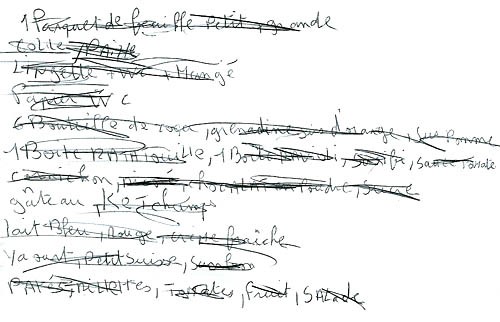 1 Parquet de feuille Petit, grande
colle, Paille
Lingette + WC + Mangé
Papier WC
6 Bouteille de coca, grenadine, jus d'orange, jus Pomme
1 Boite RATATOUille, 1 Boite, Sauce tomate
chocolat en Poudre, sucre
gâteau, KETchup
lait Bleu, Rouge, creme fraîche
Yaourt, Petit Suisse
PATES, Tomates, fruit, SALADE